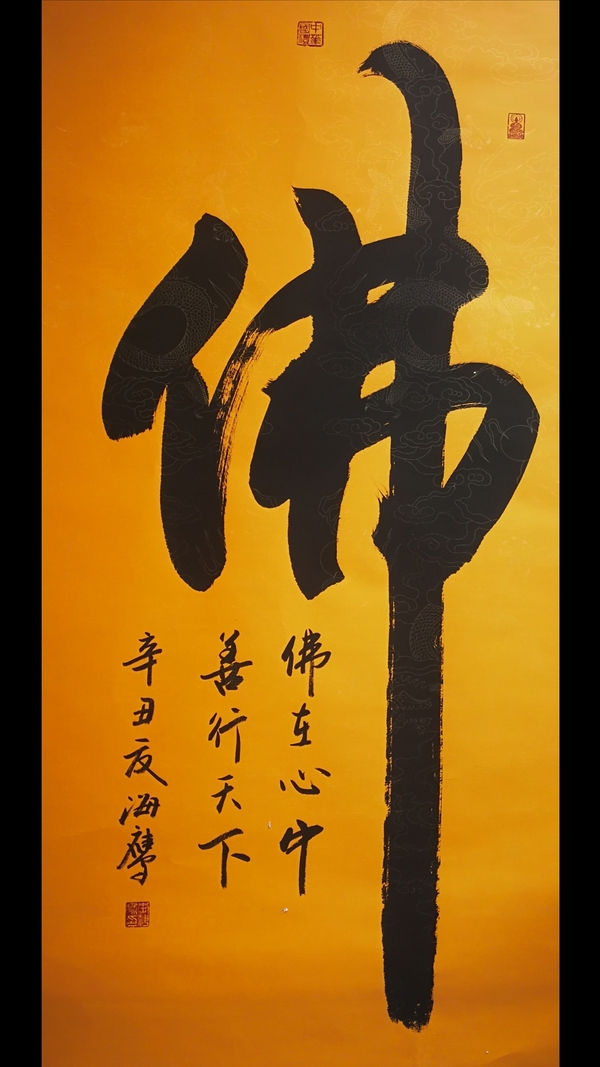 佛
佛在心中
善行天下
辛丑夏海鹰